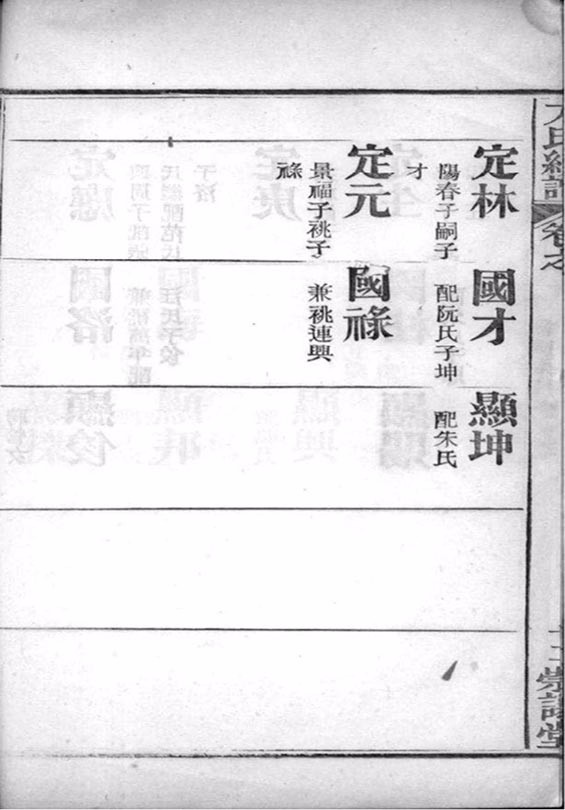 定林
陽春子嗣子
才
國才
配阮氏子坤
顯坤
配朱氏
定元
景福子祧子
祿
國祿
兼祧連興